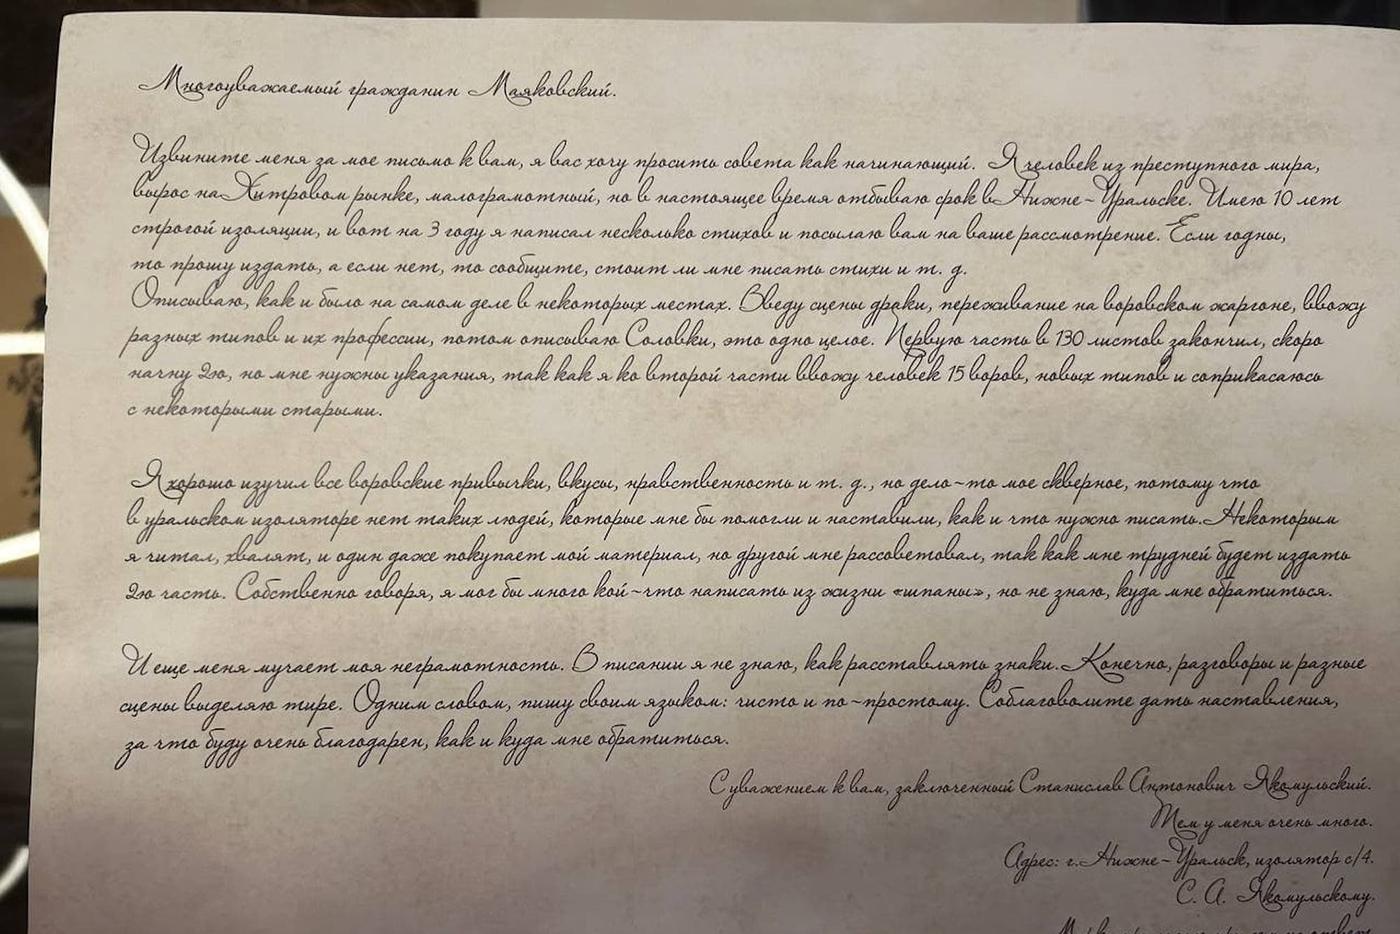 Многоуважаемый гражданин Маяковский.
Извините меня за мое письмо к вам, я вас хочу просить совета как начинающий. Я человек из преступного мира,
вырос на Хитровом рынке, малограмотный, но в настоящее время отбываю срок в Нижне-Уральске. Имею 10 лет
строгой изоляции, и вот на 3 году я написал несколько стихов и посылаю вам на ваше рассмотрение. Если годны,
то прошу издать, а если нет, то сообщите, стоит ли мне писать стихи и т. д.
Описываю, как и было на самом деле в некоторых местах. Введу сцены драки, переживание на воровском жаргоне, ввожу
разных типов и их профессии, потом описываю Соловки, это одно целое. Первую часть в 130 листов закончил, скоро
начну 2ю, но мне нужны указания, так как я ко второй части ввожу человек 15 воров, новых типов и соприкасаюсь
с некоторыми старыми.
Я хорошо изучил все воровские привычки, вкусы, нравственность и т. д., но дело-то мое скверное, потому что
в уральском изоляторе нет таких людей, которые мне бы помогли и наставили, как и что нужно писать. Некоторым
я читал, хвалят, и один даже покупает мой материал, но другой мне рассоветовал, так как мне трудней будет издать
2ю часть. Собственно говоря, я мог бы много кой-что написать из жизни «шпаны», но не знаю, куда мне обратиться.
И еще меня мучает моя неграмотность. В писании я не знаю, как расставлять знаки. Конечно, разговоры и разные
сцены выделяю тире. Одним словом, пишу своим языком: чисто и по-простому. Соблаговолите дать наставления,
за что буду очень благодарен, как и куда мне обратиться.
С уважением к вам, заключенный Станислав Антонович Якомульский.
Тем у меня очень много.
Адрес: г. Нижне-Уральск, изолятор с/4.
С. А. Якомульскому.